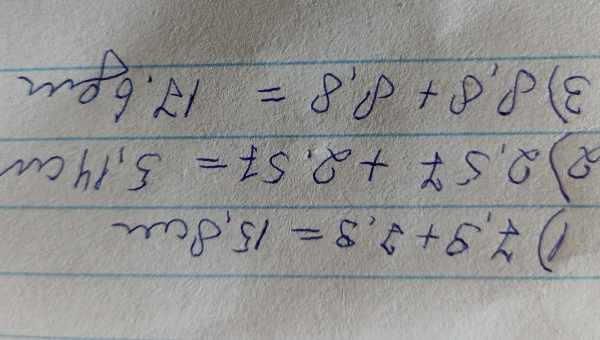 1) 7,9 + 7,9 = 15,8 см
2) 2,57 + 2,57 = 5,14 см
3) 8,8 + 8,8 = 17,6 дм